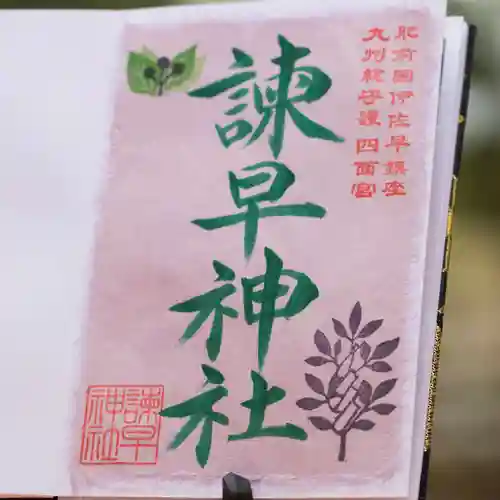 肥前國伊佐早鎮座
九州総守護 四面宮
諫早神社
諫早
神社